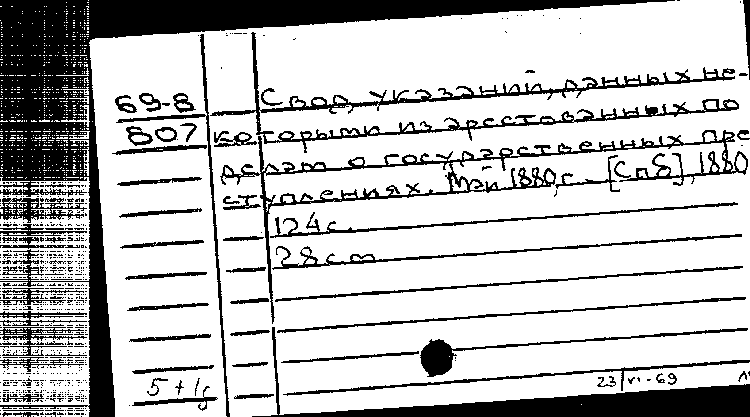 69-8 Свод указаний, данных не-
807 которыми из арестованных по
делам о государственных пре
ступлениях. Май 1880 г. [Спб], 1880
124 с.
28 см
5 + 1
23/VI-69